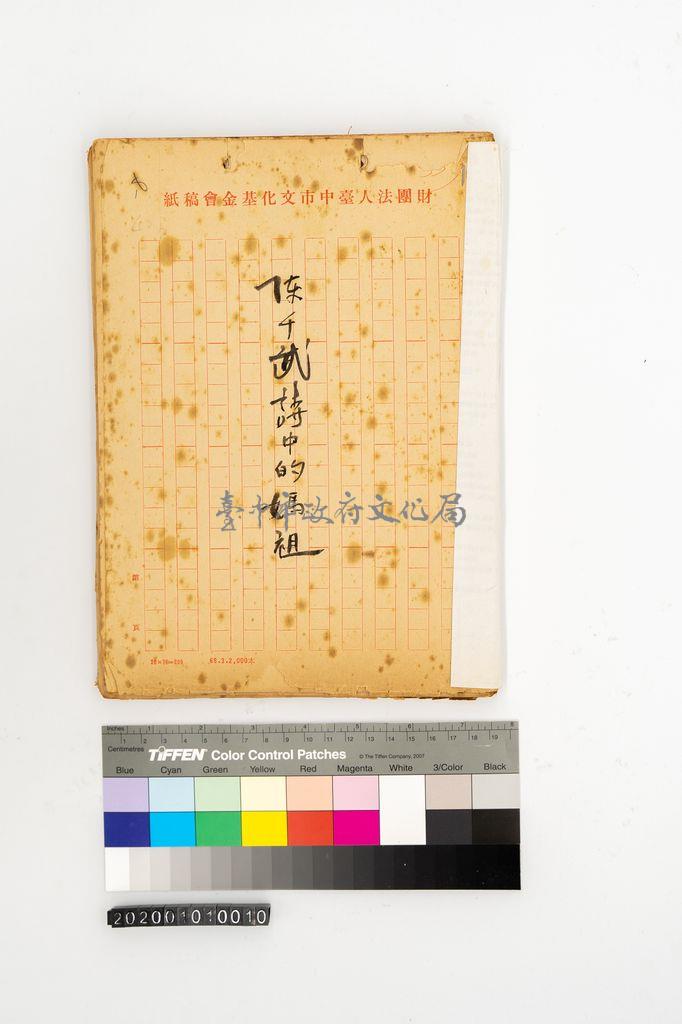 紙稿會金基化文市中臺人法團財
陈千武詩中的媽祖
臺中市政府文化局
第
頁
20×10=200
68.3.2,000本
Inches 1 2 3 4 5 6 7 8
Centimetres 1 2 3 4 5 6 7 8 9 10 11 12 13 14 15 16 17 18 19
TIFFEN Color Control Patches © The Tiffen Company, 2007
Blue Cyan Green Yellow Red Magenta White 3/Color Black
202001010010